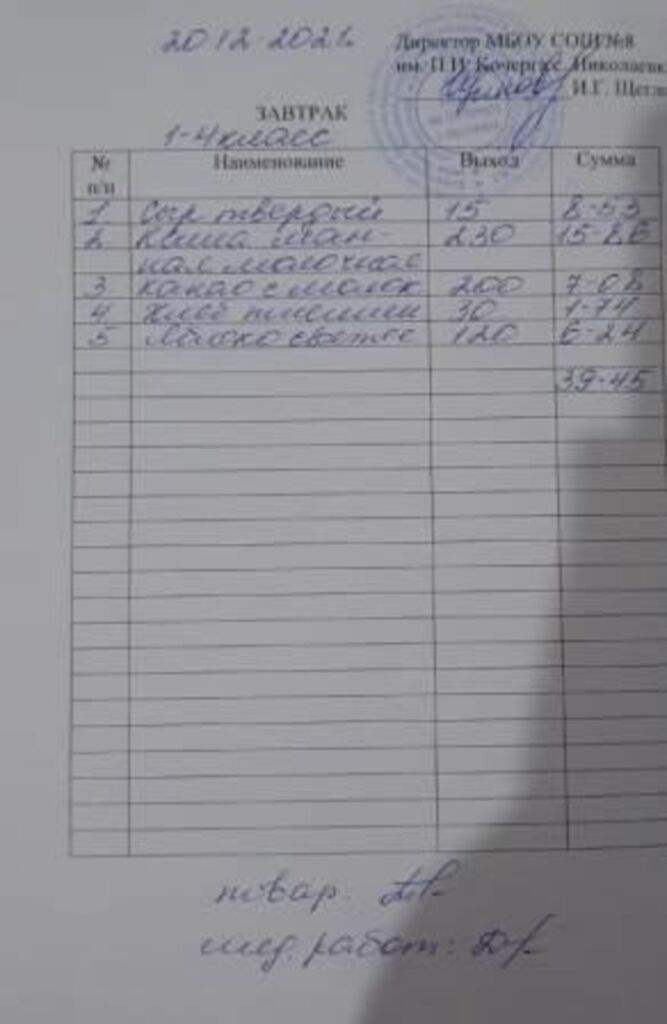 20 12 2021.
Директор МБОУ СОШ №8
им. П.И. Кочерга с. Николаевк
И.Г. Щегл
ЗАВТРАК
1-4 класс
№ п/п Наименование Выход Сумма
1 Сыр твердый 15 8-53
2 Каша ман- 230 15-86
ная молочная
3 Какао с молок 200 7-08
4 Хлеб пшенич 30 1-74
5 Яблоко свежее 120 6-24
39-45
повар.
мед. работ: